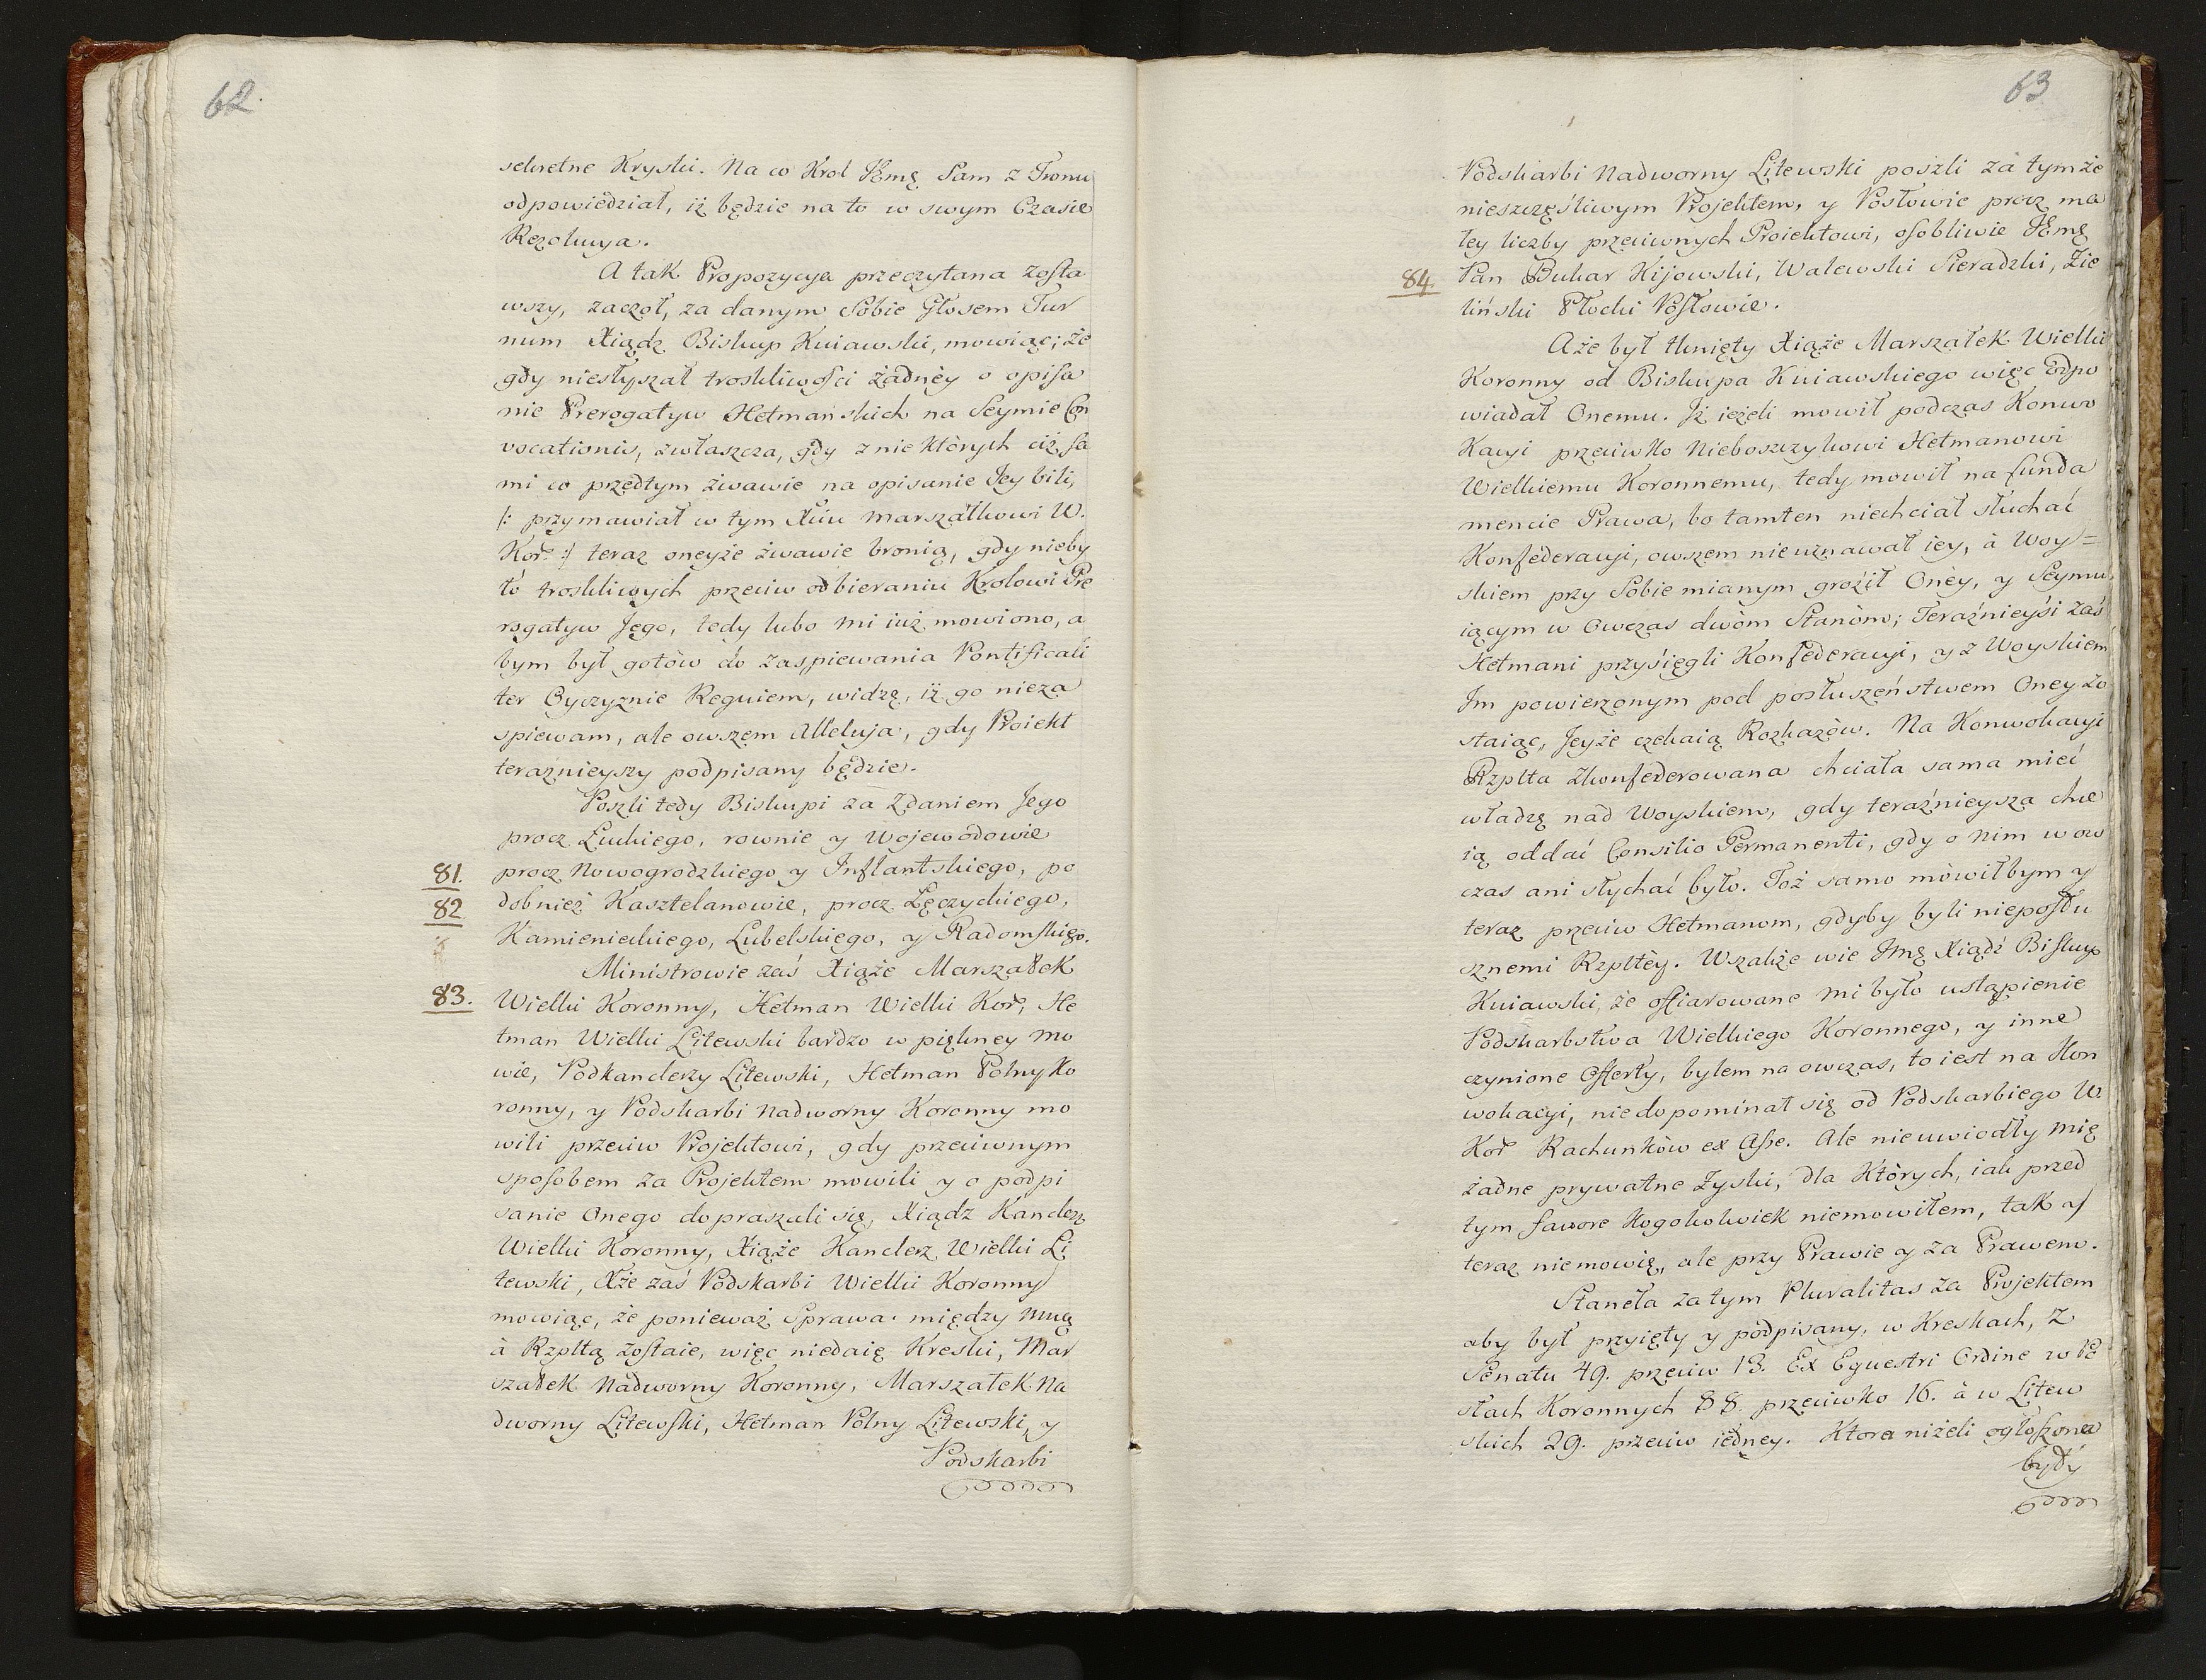 62.
sekretne Kryski. Na co Krol JEmę Sam z Tronu
odpowiedział, iż będzie na to w swym Czasie
Rezolucya.
A tak Propozycya przeczytana zosta
wszy, zaczoł, za danym Sobie Głosem Tur
num Xiądz Biskup Kuiawski, mowiąc; że
gdy niesłyszał troskliwości żadnéy o opisa
nie Prerogatyw Hetmańskich na Seymie Con
vocationis, zwłaszcza, gdy z nie których ciż sa
mi co przedtym żwawie na opisanie Jey bili,
/: przymawiał w tym Xciu Marszałkowi W.
Koř: :/ teraz oneyże żwawie bronią, gdy nieby
ło troskliwych przeciw odbieraniu Krolowi Pre
rogatyw Jego, tedy lubo mi iuż mowiono, a
bym był gotòw do zaspiewania Pontificali
ter Oyczyznie Requiem, widzę, iż go nieza
spiewam, ale owszem Alleluja, gdy Proiekt
teraznieyszy podpisany będzie.
Poszli tedy Biskupi za Zdaniem Jego
procz Łuckiego, rownie y Wojewodowie
81. procz Nowogrodzkiego y Inflantskiego, po
82 dobnież Kasztelanowie, procz Łęczyckiego,
Kamienieckiego, Lubelskiego, y Radomskiego.
Ministrowie zaś Xiąże Marszałek
83. Wielki Koronny, Hetman Wielki Koř, He
tman Wielki Litewski bardzo w piękney mo
wie, Podkanclerzy Litewski, Hetman Polny Ko
ronny, y Podskarbi Nadworny Koronny mo
wili przeciw Projektowi, gdy przeciwnym
sposobem za Projektem mowili y o podpi
sanie Onego dopraszali się, Xiądz Kanclerz
Wielki Koronny, Xiąże Kanclerz Wielki Li
tewski, Xże zaś Podskarbi Wielki Koronny
mowiąc, że ponieważ Sprawa między mną
à Rzpltą zostaie, więc niedaię Kreski, Mar
szałek Nadworny Koronny, Marszałek Na
dworny Litewski, Hetman Polny Litewski, y
Podskarbi
63
Podskarbi Nadworny Litewski poszli za tymże
nieszczęśliwym Projektem, y Posłowie procz ma
łey liczby przeciwnych Proiektowi, osobliwie JEmę
84. Pan Buhar Kijowski, Walewski Sieradzki, Zie
liński Płocki Posłowie.
A że był tknięty Xiąże Marszałek Wielki
Koronny od Biskupa Kuiawskiego więc odpo
wiadał Onemu. Iż ieżeli mowił podczas Konwo
kacyi przeciwko Nieboszczykowi Hetmanowi
Wielkiemu Koronnemu, tedy mowił na funda
mencie Prawa, bo tamten niechciał słuchać
Konfederacyi, owszem nieuznawał iey, à Woy=
skiem przy Sobie mianym groził Onéy, y Seymu
iącym w Owczas dwòm Stanòm; Teraźnieysi zaś
Hetmani przysięgli Konfederacyi, y z Woyskiem
Im powierzonym pod posłuszeństwem Oney zo
staiąc, Jeyże czekaią Rozkazòw. Na Konwokacyi
Rzplta Zkonfederowana chciała sama mieć
władzę nad Woyskiem, gdy teraźnieysza chce
ią oddać Consilio Permanenti, gdy o nim w ow
czas ani słychać było. Toż samo mòwiłbym y
teraz przeciw Hetmanom, gdyby byli nieposłu
sznemi Rzpltéy. Wszakże wie Jmę Xiądź Biskup
Kuiawski, że offiarowane mi było ustąpienie
Podskarbstwa Wielkiego Koronnego, y inne
czynione Offerty, bylem na owczas, to iest na Kon
wokacyi, niedopominał się od Podskarbiego W.
Koř Rachunkòw ex Asse. Ale nieuwiodły mię
żadne prywatne Zyski, dla Których, iak przed
tym favore Kogokolwiek niemowiłem, tak y
teraz niemowię, ale przy Prawie y za Prawem.
Staneła zatym Pluralitas za Projektem
aby był przyięty y podpisany, w Kreskach, z
Senatu 49. przeciw 13. Ex Equestri Ordine w Po
słach Koronnych 88. przeciwko 16. à w Litew
skich 29. przeciw iedney. Ktora niżeli ogłoszona
były